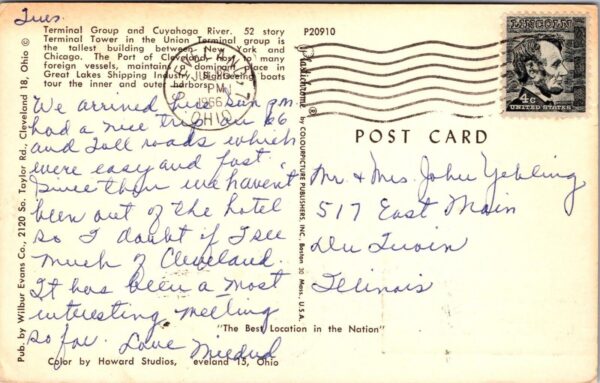 Tues.
Terminal Group and Cuyahoga River. 52 story
Terminal Tower in the Union Terminal group is
the tallest building between New York and
Chicago. The Port of Cleveland, host to many
foreign vessels, maintains a dominant place in
Great Lakes Shipping Industry. Sightseeing boats
tour the inner and outer harbors.
We arrived here Sun P.M.
had a nice trip on 66
and Toll roads which
were easy and fast.
Since then we haven't
been out of the hotel
so I doubt if I see
much of Cleveland.
It has been a most
interesting meeting
so far. Love Mildred
Color by Howard Studios, eveland 15, Ohio
Pub. by Wilbur Evans Co., 2120 So. Taylor Rd., Cleveland 18, Ohio ©
CLEVELAND
PM
1966
OHIO
P20910
Plastichrome ®
by COLOURPICTURE PUBLISHERS, INC., Boston 30 Mass. U.S.A.
LINCOLN
4¢
UNITED STATES
POST CARD
Mr & Mrs. John Yehling
517 East Main
Du Quoin
Illinois
"The Best Location in the Nation"